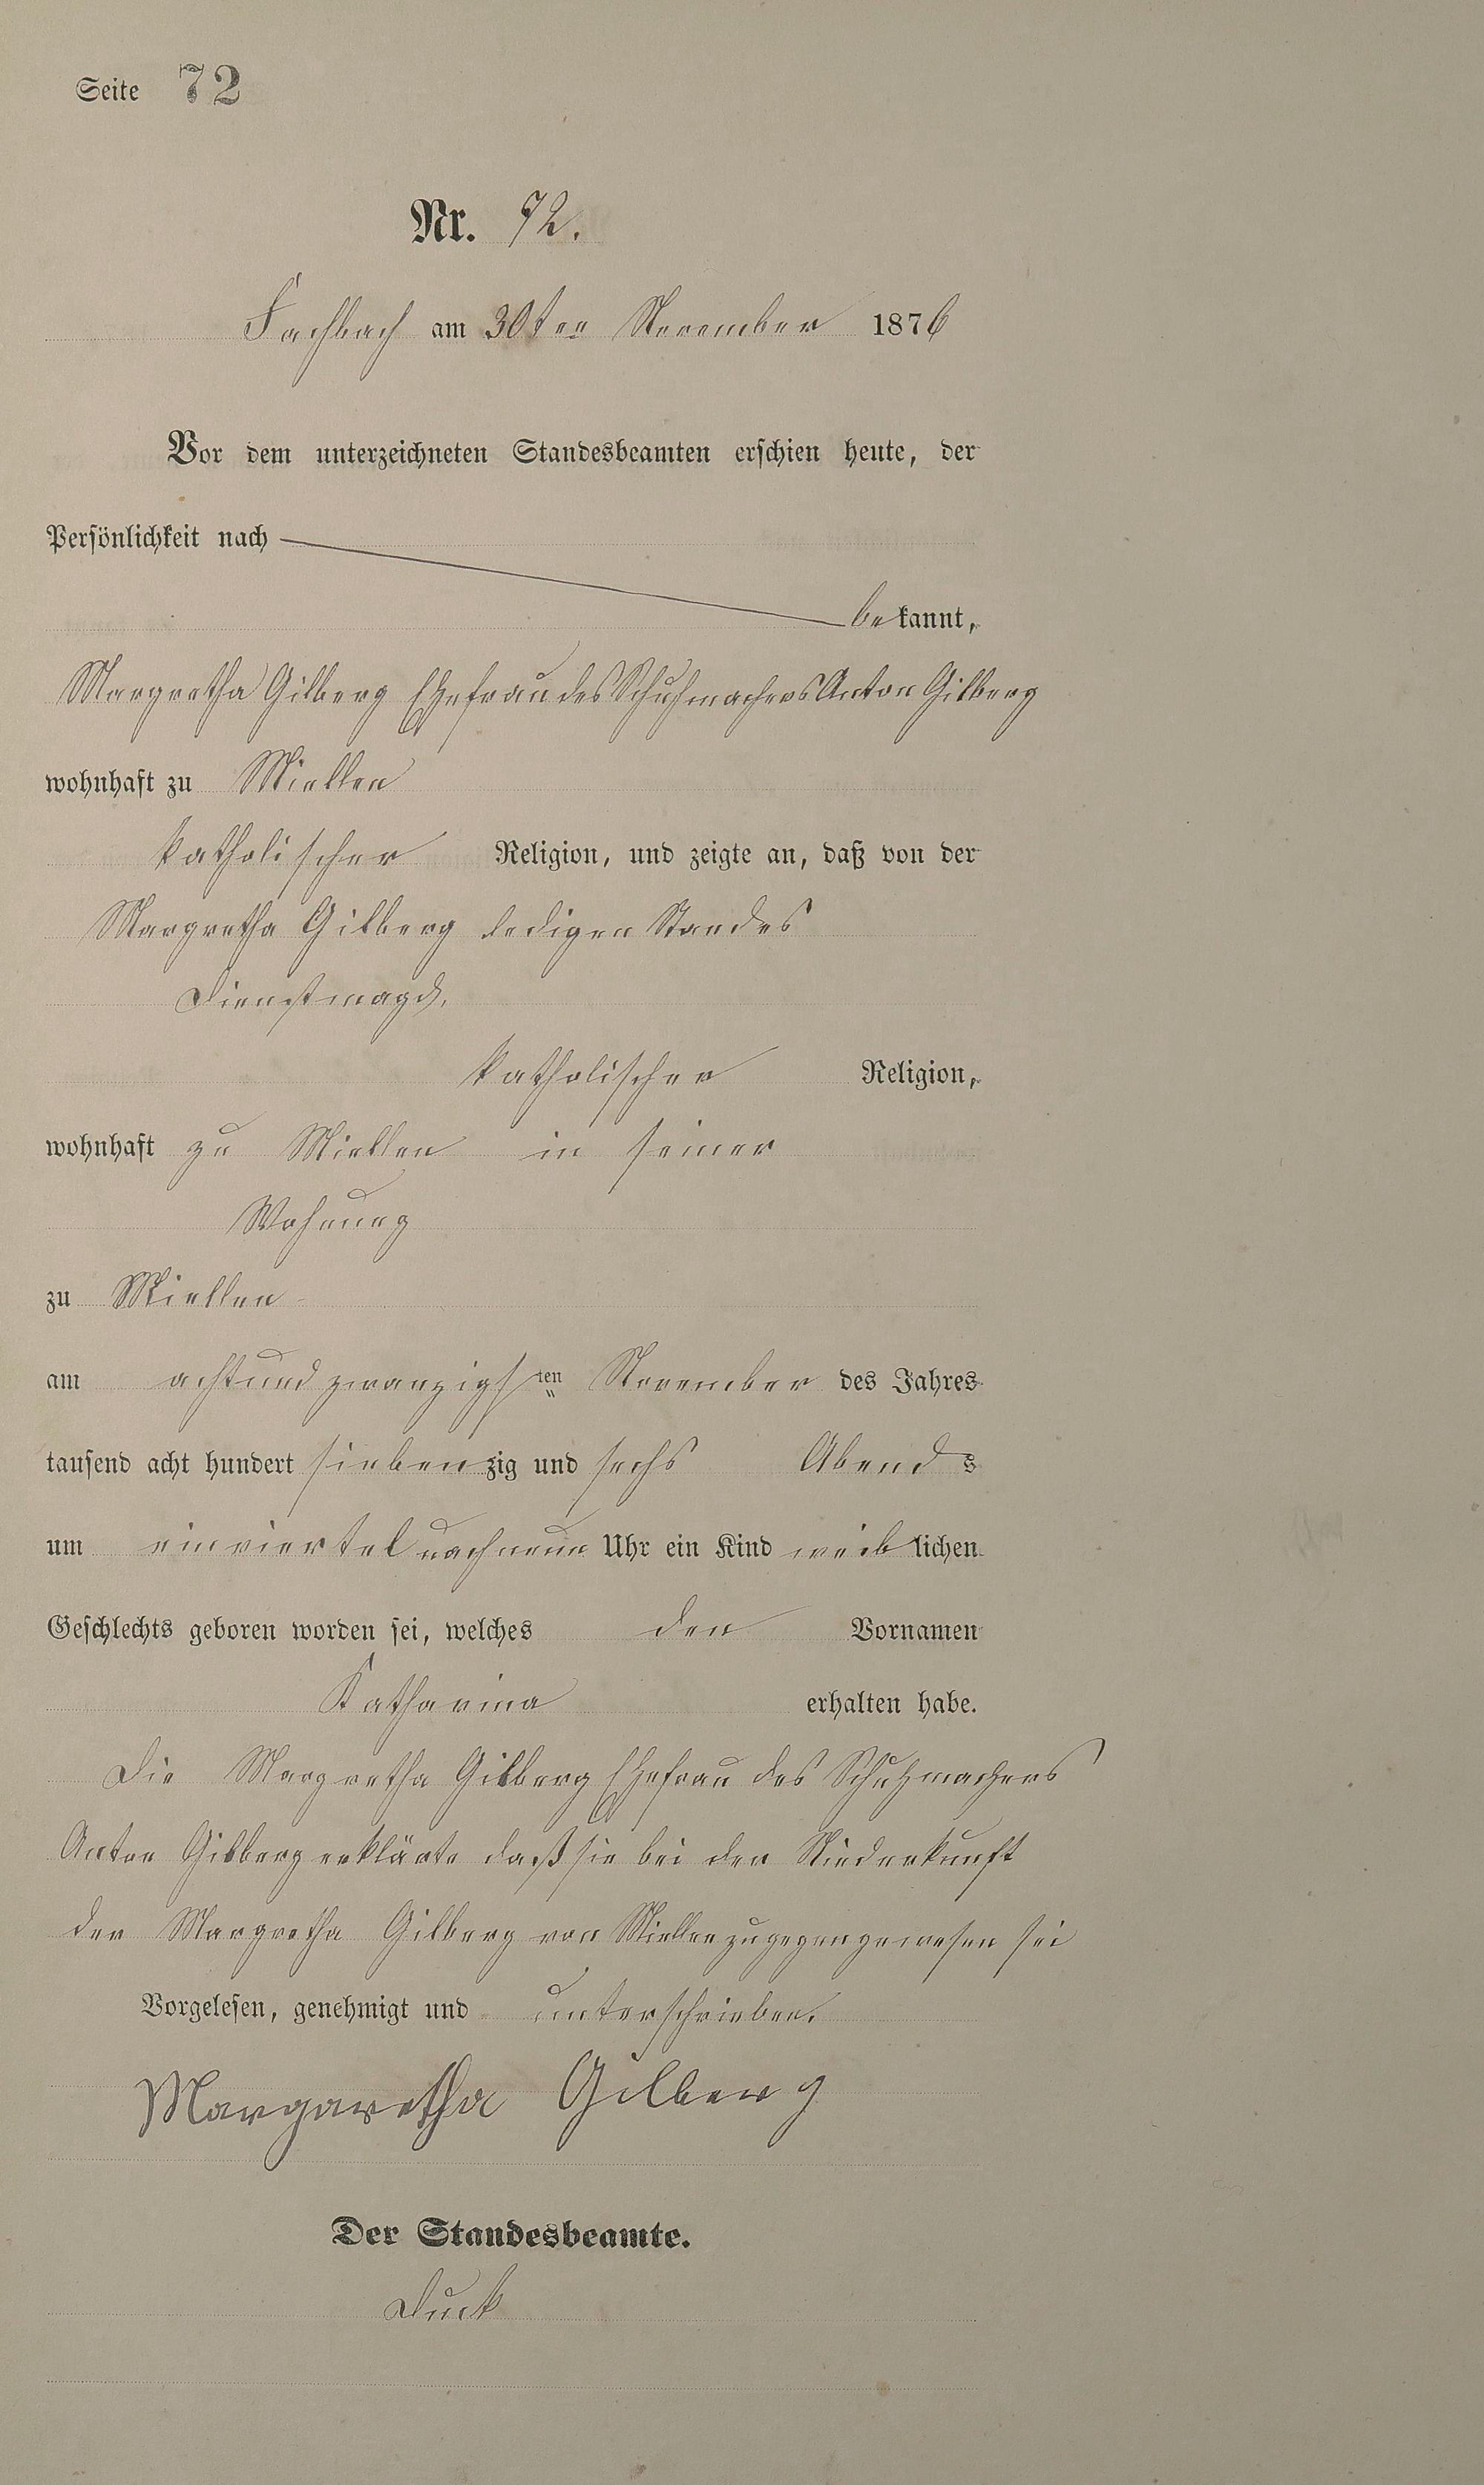 Seite 72
Nr. 72.
Fachbach am 30ten November 1876
Vor dem unterzeichneten Standesbeamten erschien heute, der
Persönlichkeit nach
bekannt,
Margretha Gilberg Ehefrau des Schuhmachers Anton Gilberg
wohnhaft zu Miellen
katholischer Religion, und zeigte an, daß von der
Margretha Gilberg ledigen Standes
Dienstmagd,
katholischer Religion,
wohnhaft zu Miellen in seiner
Wohnung
zu Miellen
am achtundzwanzigsten November des Jahres
tausend acht hundert siebenzig und sechs Abends
um einviertel nach neun Uhr ein Kind weiblichen
Geschlechts geboren worden sei, welches den Vornamen
Katharina erhalten habe.
Die Margretha Gilberg Ehefrau des Schuhmachers
Anton Gilberg erklärte daß sie bei der Niederkunft
der Margretha Gilberg von Miellen zugegen gewesen sei
Vorgelesen, genehmigt und unterschrieben.
Margaretha Gilberg
Der Standesbeamte.
Duck